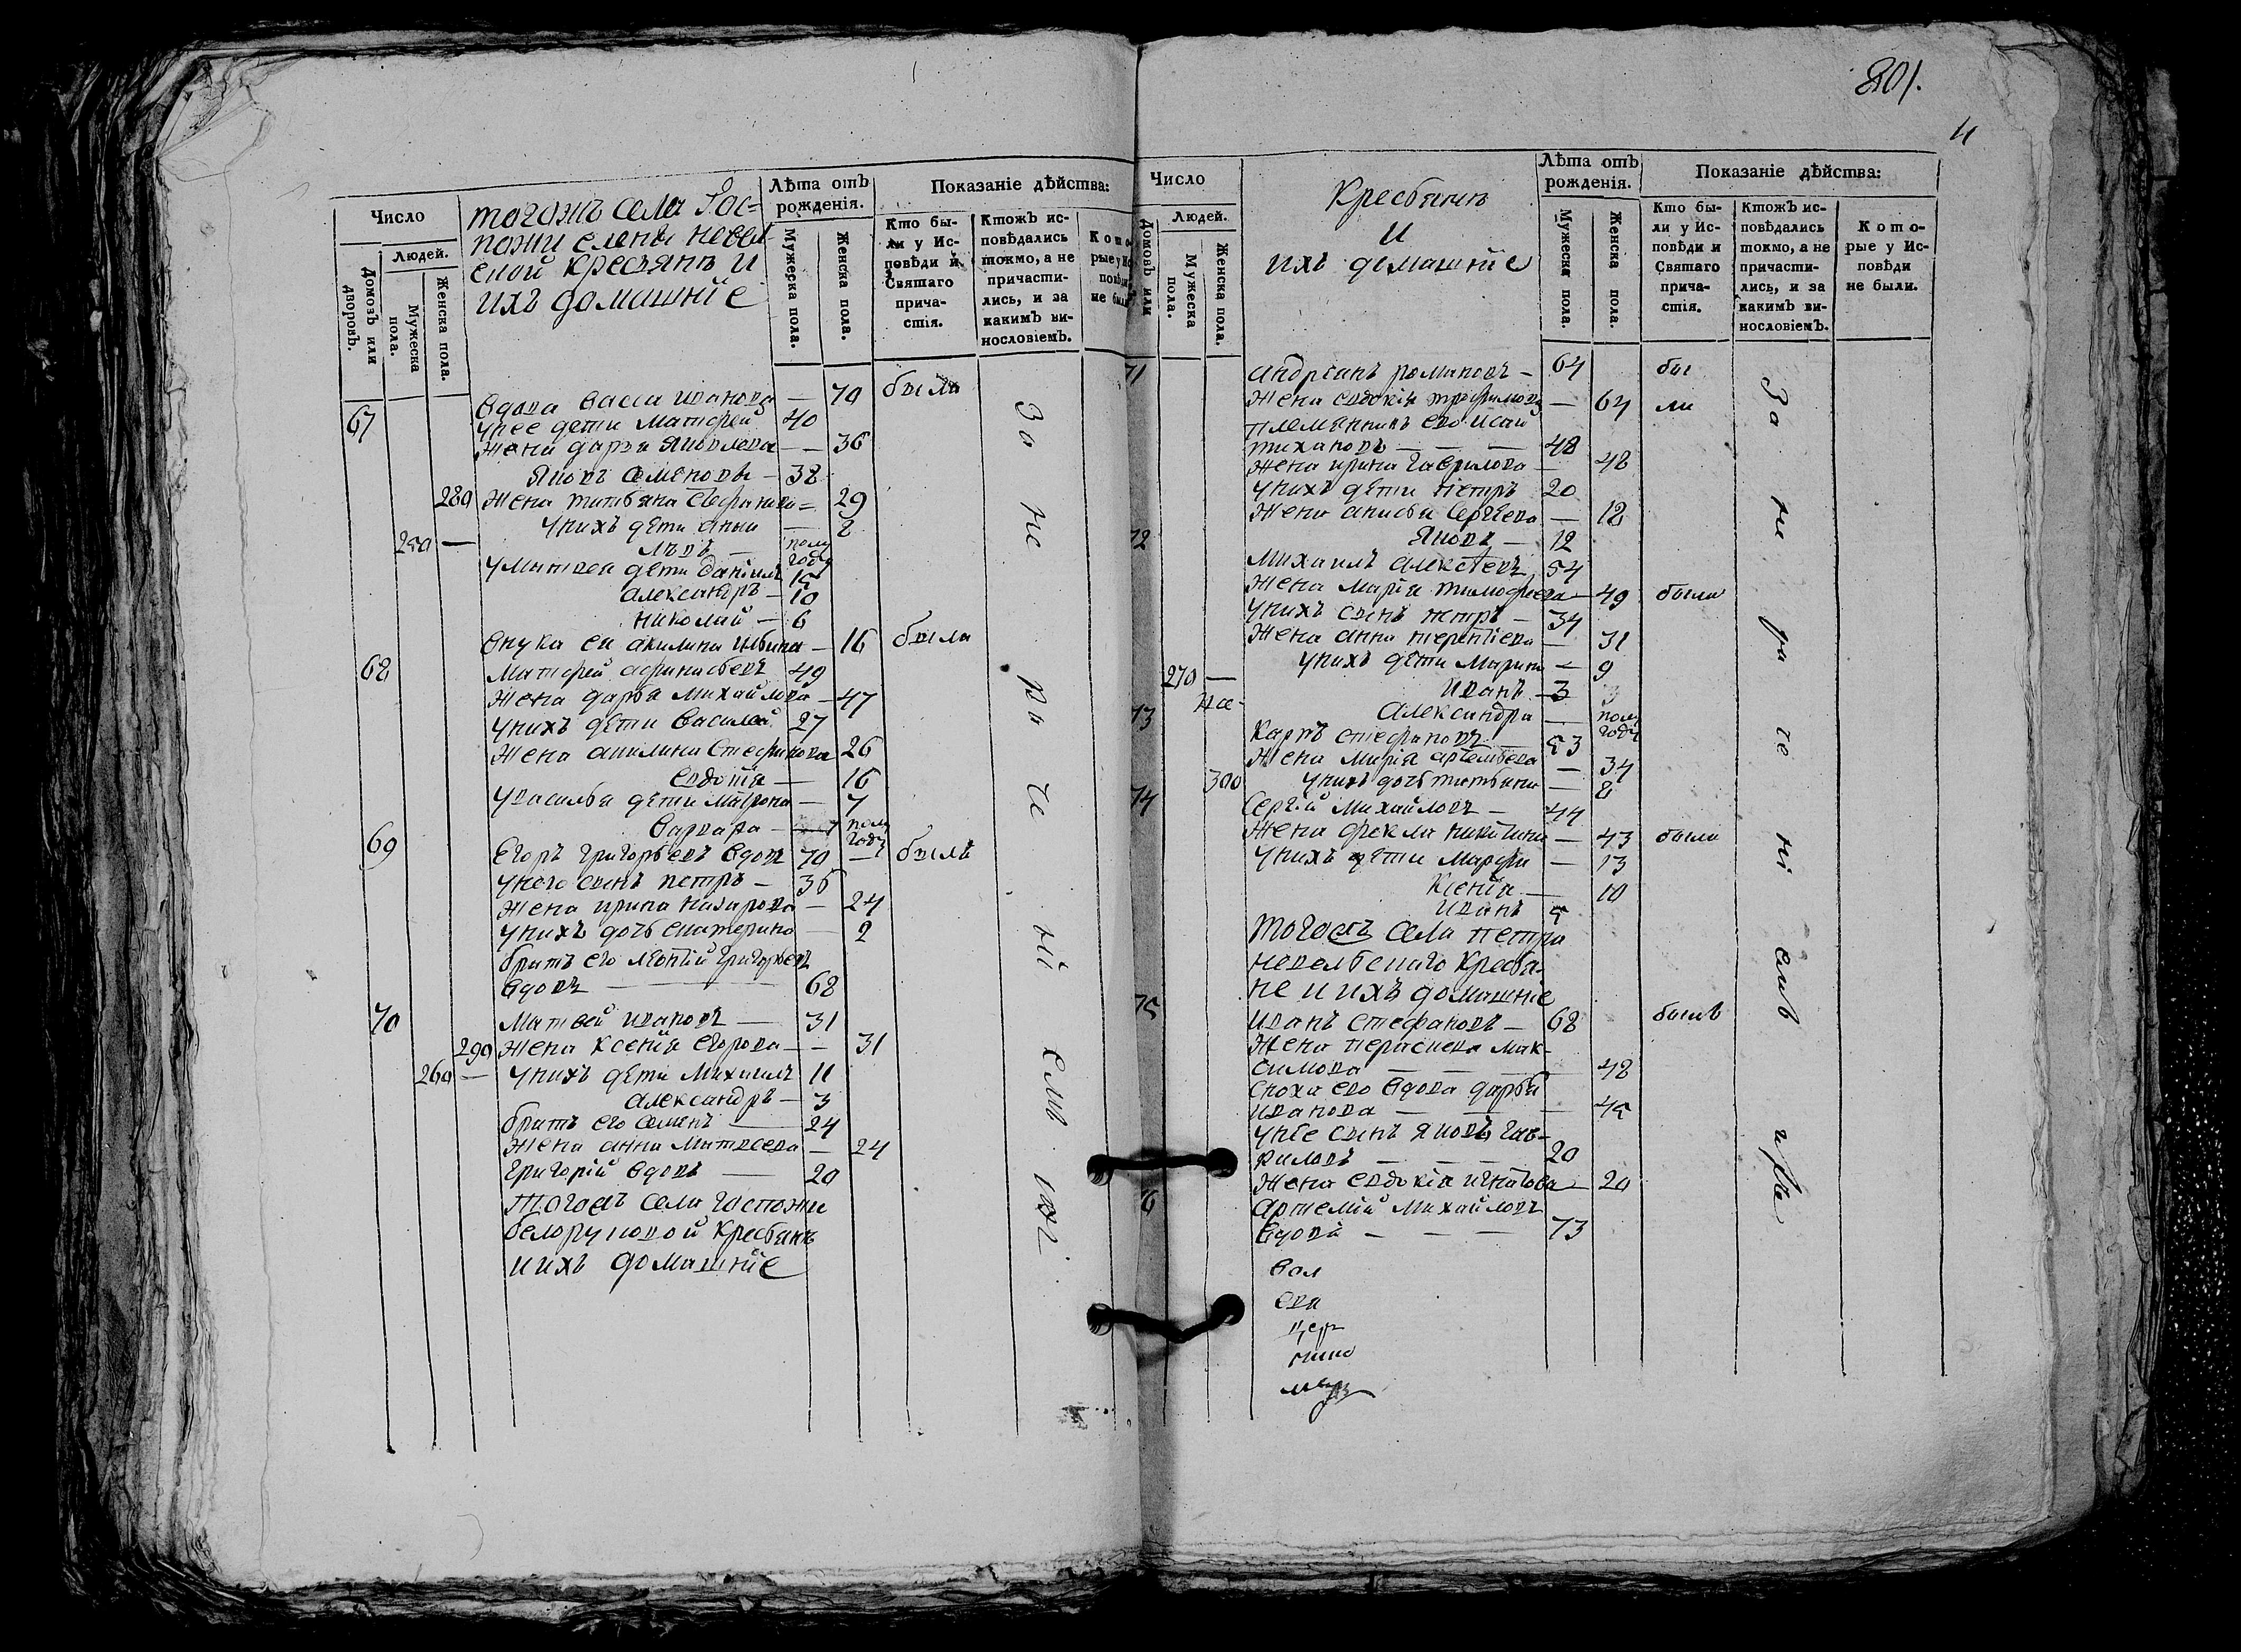 801.
11
Число
Людей.
Домовъ или дворовъ.
Мужеска пола.
Женска пола.
тогожъ села Гос-
пожи елены
кресьянъ и
ихъ домашніе
Лѣта отъ рожденія.
Мужеска пола.
Женска пола.
Показаніе дѣйства:
Кто бы-
ли у Ис-
повѣди и
Святаго
прича-
стія.
Ктожъ ис-
повѣдались
токмо, а не
причасти-
лись, и за
какимъ ви-
нословіемъ.
67 вдова васса иванова — 70 была
унее дети Матфей 40
Жена дарья яковлева — 36
Яковъ семеновъ — 38
280 Жена татьяна — 29
унихъ дети — 2
250 — левъ — полу года
уматвея дети даніилъ 15
александръ — 10
николай — 6
внука ея акилина — 16 была
68 Матфей афанасьевъ 49
Жена дарья михайлова — 47
унихъ дети василей 27
Жена акилина стефанова 26
евдокія — 16
увасилья дети матрона — 7
варвара — полу года
69 Егоръ григорьевъ вдовъ 70 — былъ
унего сынъ петръ — 36
Жена ирина назарова — 24
унихъ дочь екатерина — 2
братъ его григорьевъ
вдовъ — 68
70 Матвей ивановъ — 31
290 Жена ксенія егорова — 31
260 — унихъ дети михаилъ 11
александръ — 3
братъ его семенъ — 24
Жена анна матвеева — 24
григорій вдовъ — 20
тогожъ села госпожи
кресьянъ
и ихъ домашніе
За не ра че ні емъ
Число
Людей.
Домовъ или
Мужеска пола.
Женска пола.
Кресьянъ
и
ихъ домашніе
Лѣта отъ рожденія.
Мужеска пола.
Женска пола.
Показаніе дѣйства:
Кто бы-
ли у Ис-
повѣди и
Святаго
прича-
стія.
Ктожъ ис-
повѣдались
токмо, а не
причасти-
лись, и за
какимъ ви-
нословіемъ.
Кото-
рые у Ис-
повѣди
не были.
71 андреанъ романовъ — 64 бы
Жена евдокія трофимова — 64 ли
племянникъ его исаи
тихановъ — 48
Жена ирина гаврилова — 48
унихъ дети петръ 20
Жена анисья сергѣева — 18
Яковъ — 12
72 Михаилъ алексѣевъ 54
Жена марія тимофеева — 49 были
унихъ сынъ петръ — 34
Жена анна терентіева — 31
унихъ дети — 9
270 — иванъ — 3
александра — полу года
73 Карпъ стефановъ — 53
Жена марія артемьева — 34
300 унихъ дочь татьяна — 8
74 Сергій михайловъ — 44
Жена фекла никитина — 43 были
унихъ дети марфа — 13
Ксенія — 10
иванъ 5
тогожъ села петра
кресья-
не и ихъ домашніе
75 иванъ стефановъ — 68 были
Жена параскева мак-
симова — 48
сноха его вдова дарья
иванова — 45
унее сынъ яковъ гав-
риловъ — 20
Жена евдокія игнатова — 20
76 артемій михайловъ
вдовъ — 73
За не ра че ні емъ